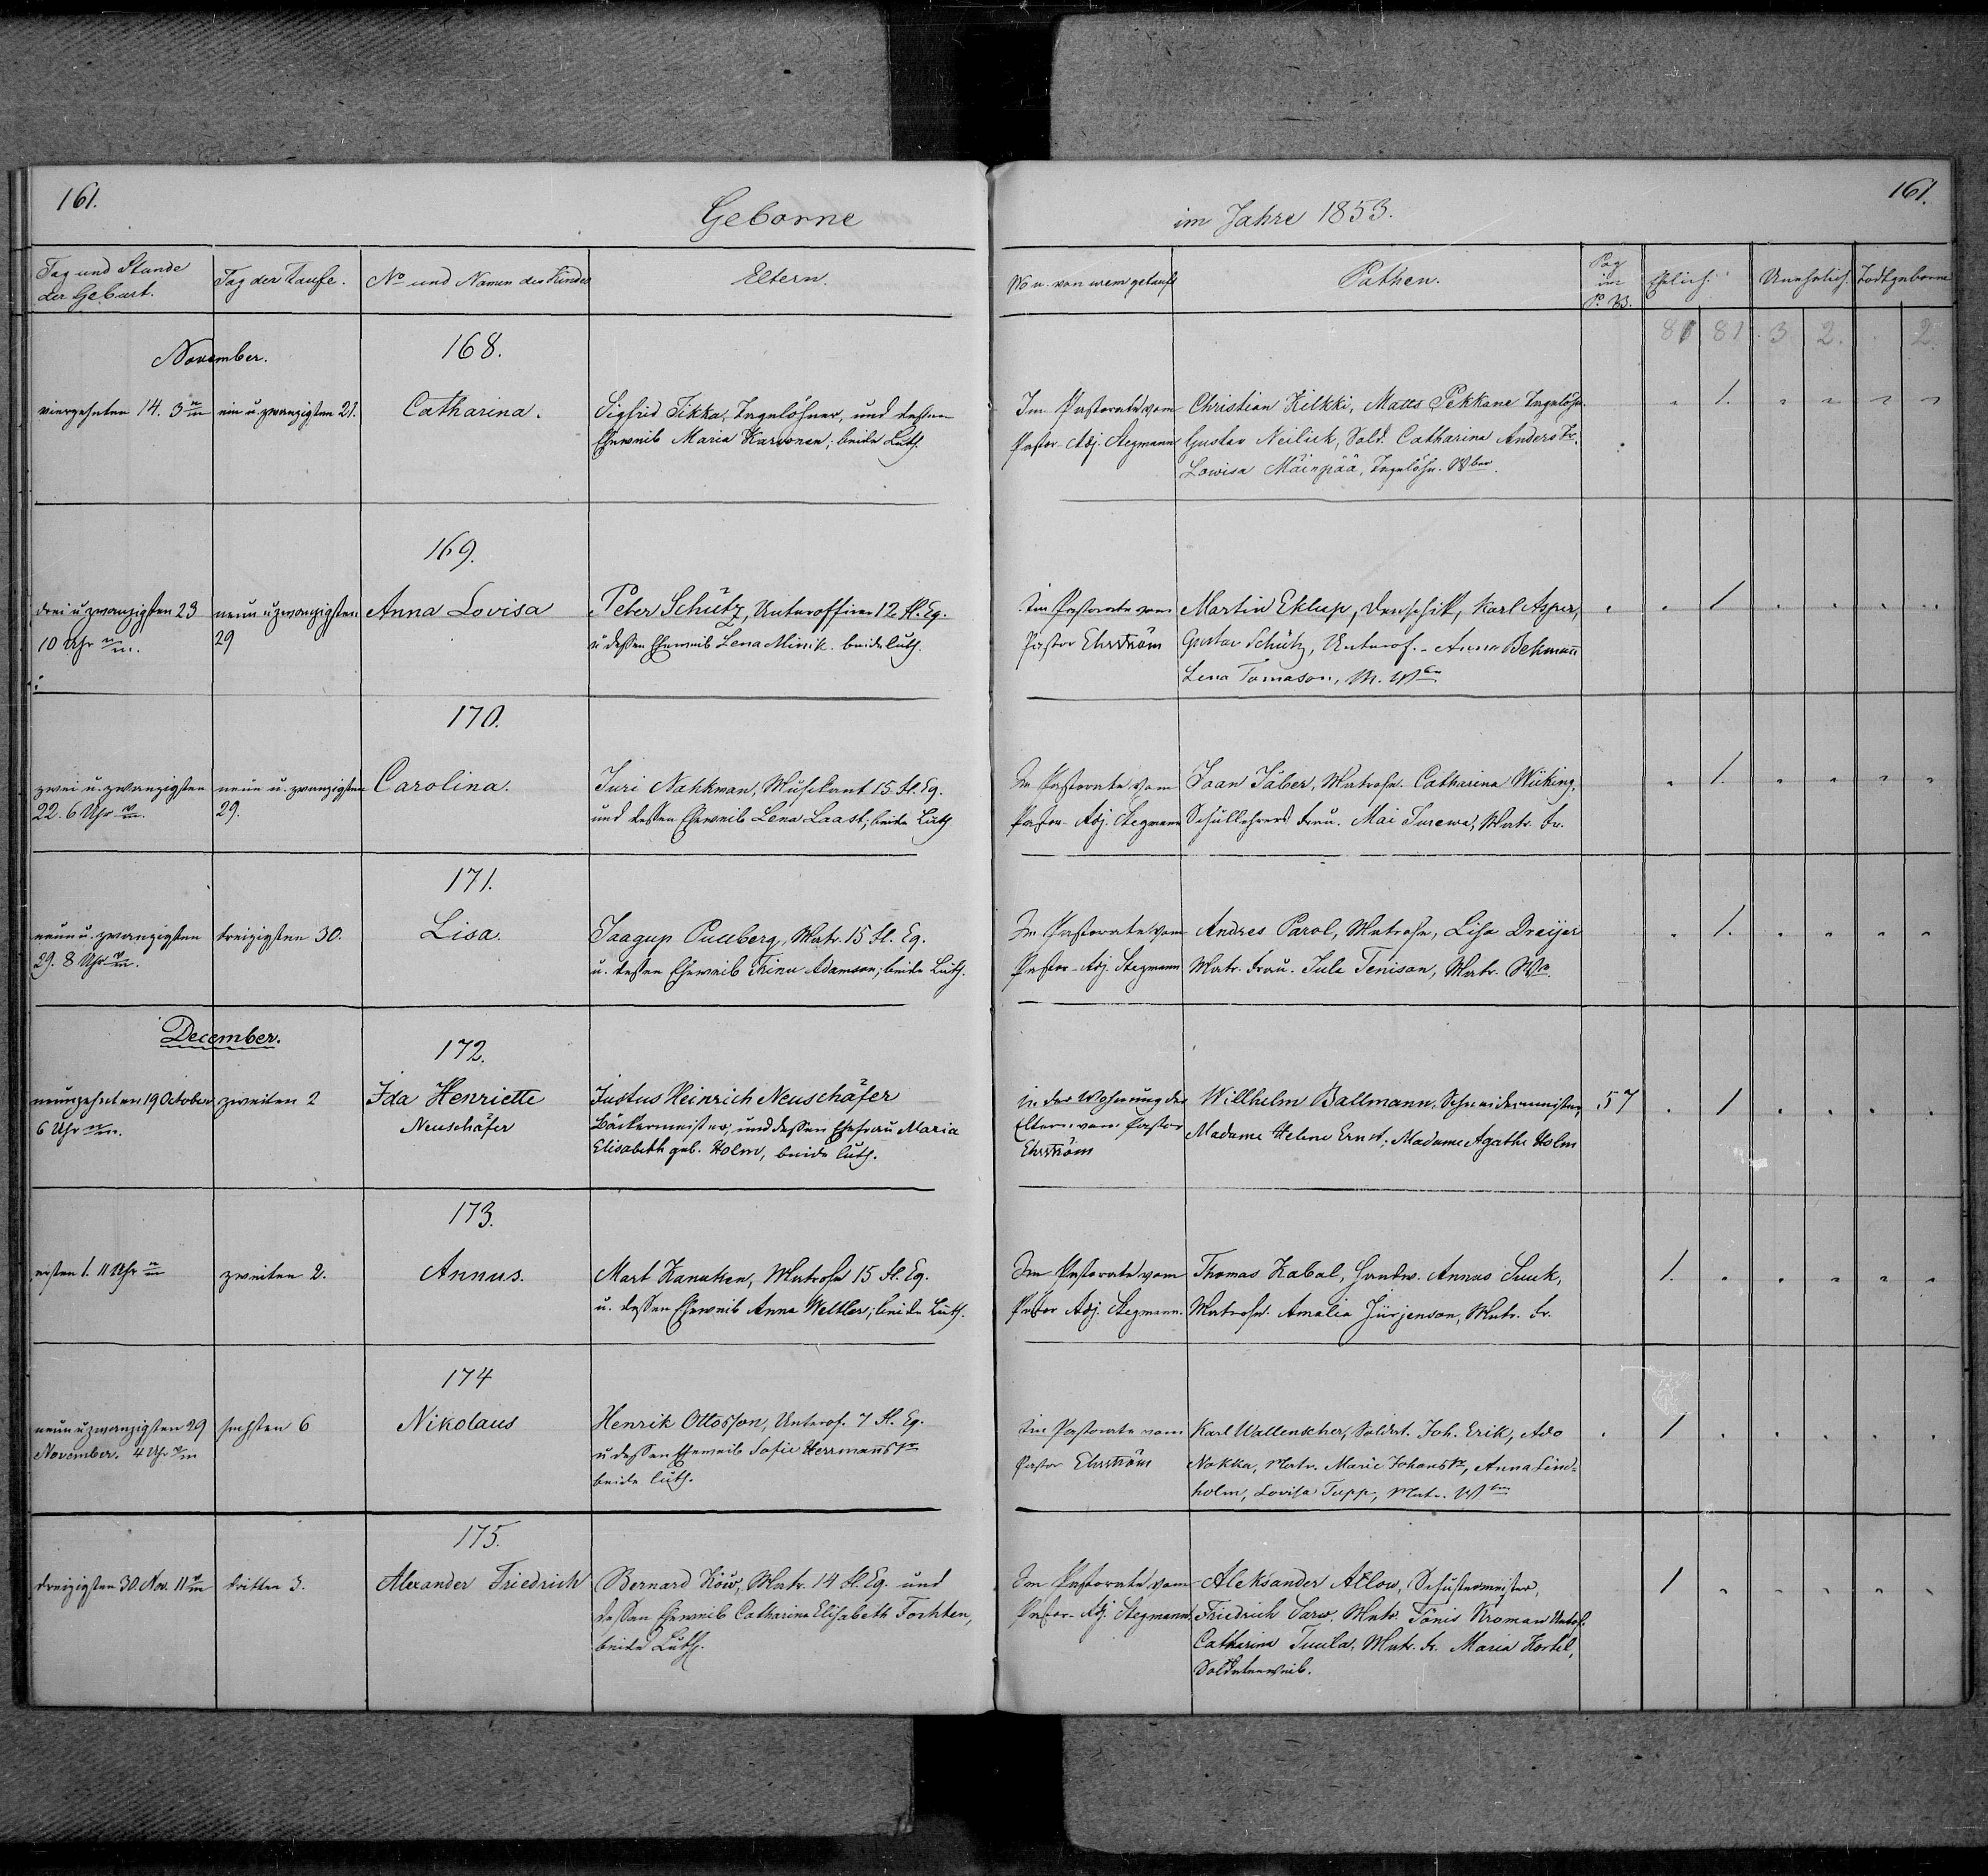 161.
Geborne
im Jahre 1853.
161.
Tag und Stunde der Geburt.
Tag der Taufe.
No und Namen des Kindes
Eltern.
Wo u. von wem getauft
Pathen.
Pag im P. B.
Ehelich.
Unehelich.
Todtgeborne
81 81 3. 2. . 2.
November.
168.
vierzehnten 14. 3 n/m
ein u. zwanzigsten 21.
Catharina.
Sigfrid Tikka, Tagelöhner, und dessen
Eheweib Maria Karvonen; beide Luth.
Im Pastorate vom
Pastor-Adj. Stegmann
Christian Kilkki, Matts Pekkane Tagelöhn.
Gustav Neilick, Sold. Catharina Anders Tr.
Lowisa Mäinpää, Tagelöhn. Wber.
" 1. " " " "
169.
drei u zwanzigsten 23
10 Uhr n/m.
neun u zwanzigsten
29
Anna Lovisa
Peter Schütz, Unteroffizier 12 Fl. Eq.
u dessen Eheweib Lena Minik. beide luth.
Im Pastorate vom
Pastor Ehrström
Martin Eklup, Denschik, Karl Asper,
Gustav Schütz, Unterof. - Anna Bekmann
Lena Tomason, M. Wbr
. . 1 . . . .
170.
zwei u. zwanzigsten
22. 6 Uhr v/m.
neun u. zwanzigsten
29.
Carolina.
Juri Nahkman, Musikant 15. Fl. Eq.
und dessen Eheweib Lena Laast; beide Luth
Im Pastorate vom
Pastor-Adj. Stegmann
Jaan Jäber, Matrose. Catharina Wiiking,
Schullehrers Frau. Mai Surewa, Matr. Fr.
" 1. " " " "
171.
neun u. zwanzigsten
29. 8 Uhr v/m.
dreizigsten 30.
Lisa.
Jaagup Puuberg, Matr. 15 Fl. Eq.
u. dessen Eheweib Trinu Adamson; beide Luth.
Im Pastorate vom
Pastor-Adj. Stegmann
Andres Parol, Matrose, Lisa Dreijer
Matr. Frau. Jula Tenison, Matr. Wb.
" 1. " " " "
December.
172.
neunzehnten 19 October
6 Uhr n/m.
zweiten 2
Ida Henriette
Neuschäfer
Justus Heinrich Neuschäfer
Bäckermeister, und dessen Ehefrau Maria
Elisabeth geb. Holm, beide luth.
in der Wohnung der
Eltern vom Pastor
Ehrström
Willhelm Ballmann, Schneidermeister,
Madame Helene Ernst, Madame Agathe Holm
57 . 1 . . . .
173.
ersten 1. 11 Uhr n/m
zweiten 2.
Annus.
Mart Kanuken, Matrose 15 Fl. Eq.
u. dessen Eheweib Anna Weltler; beide Luth.
Im Pastorate vom
Pastor Adj. Stegmann.
Thomas Kabal, Handw. Annus Suuk,
Matrose. Amalia Jürjenson, Matr. Fr.
1. " " " " "
174
neun u zwanzigsten 29
November. 4 Uhr v/m
sechsten 6
Nikolaus
Henrik Ottosson, Unterof. 7 Fl. Eq.
u dessen Eheweib Sofie Herrmanns Tr
beide luth.
Im Pastorate vom
Pastor Ehrström
Karl Wallenscher, Soldat. Joh. Erik, Ado
Nokka, Matr. Marie Johans Tr, Anna Lind-
holm, Lovisa Tupp, Matr. Wbr
. 1 . . . . .
175.
dreizigsten 30. Nov. 11 v/m
dritten 3.
Alexander Friedrich
Bernard Köiw, Matr. 14 Fl. Eq. und
dessen Eheweib Catharina Elisabeth Fochten,
beide Luth.
Im Pastorate vom
Pastor-Adj. Stegmann
Aleksander Allow, Schustermeister,
Friedrich Sarw, Matr. Tönis Kroman Untof.
Catharina Tuula, Matr. Fr. Maria Kortel,
Soldatenweib.
1 " " " " "